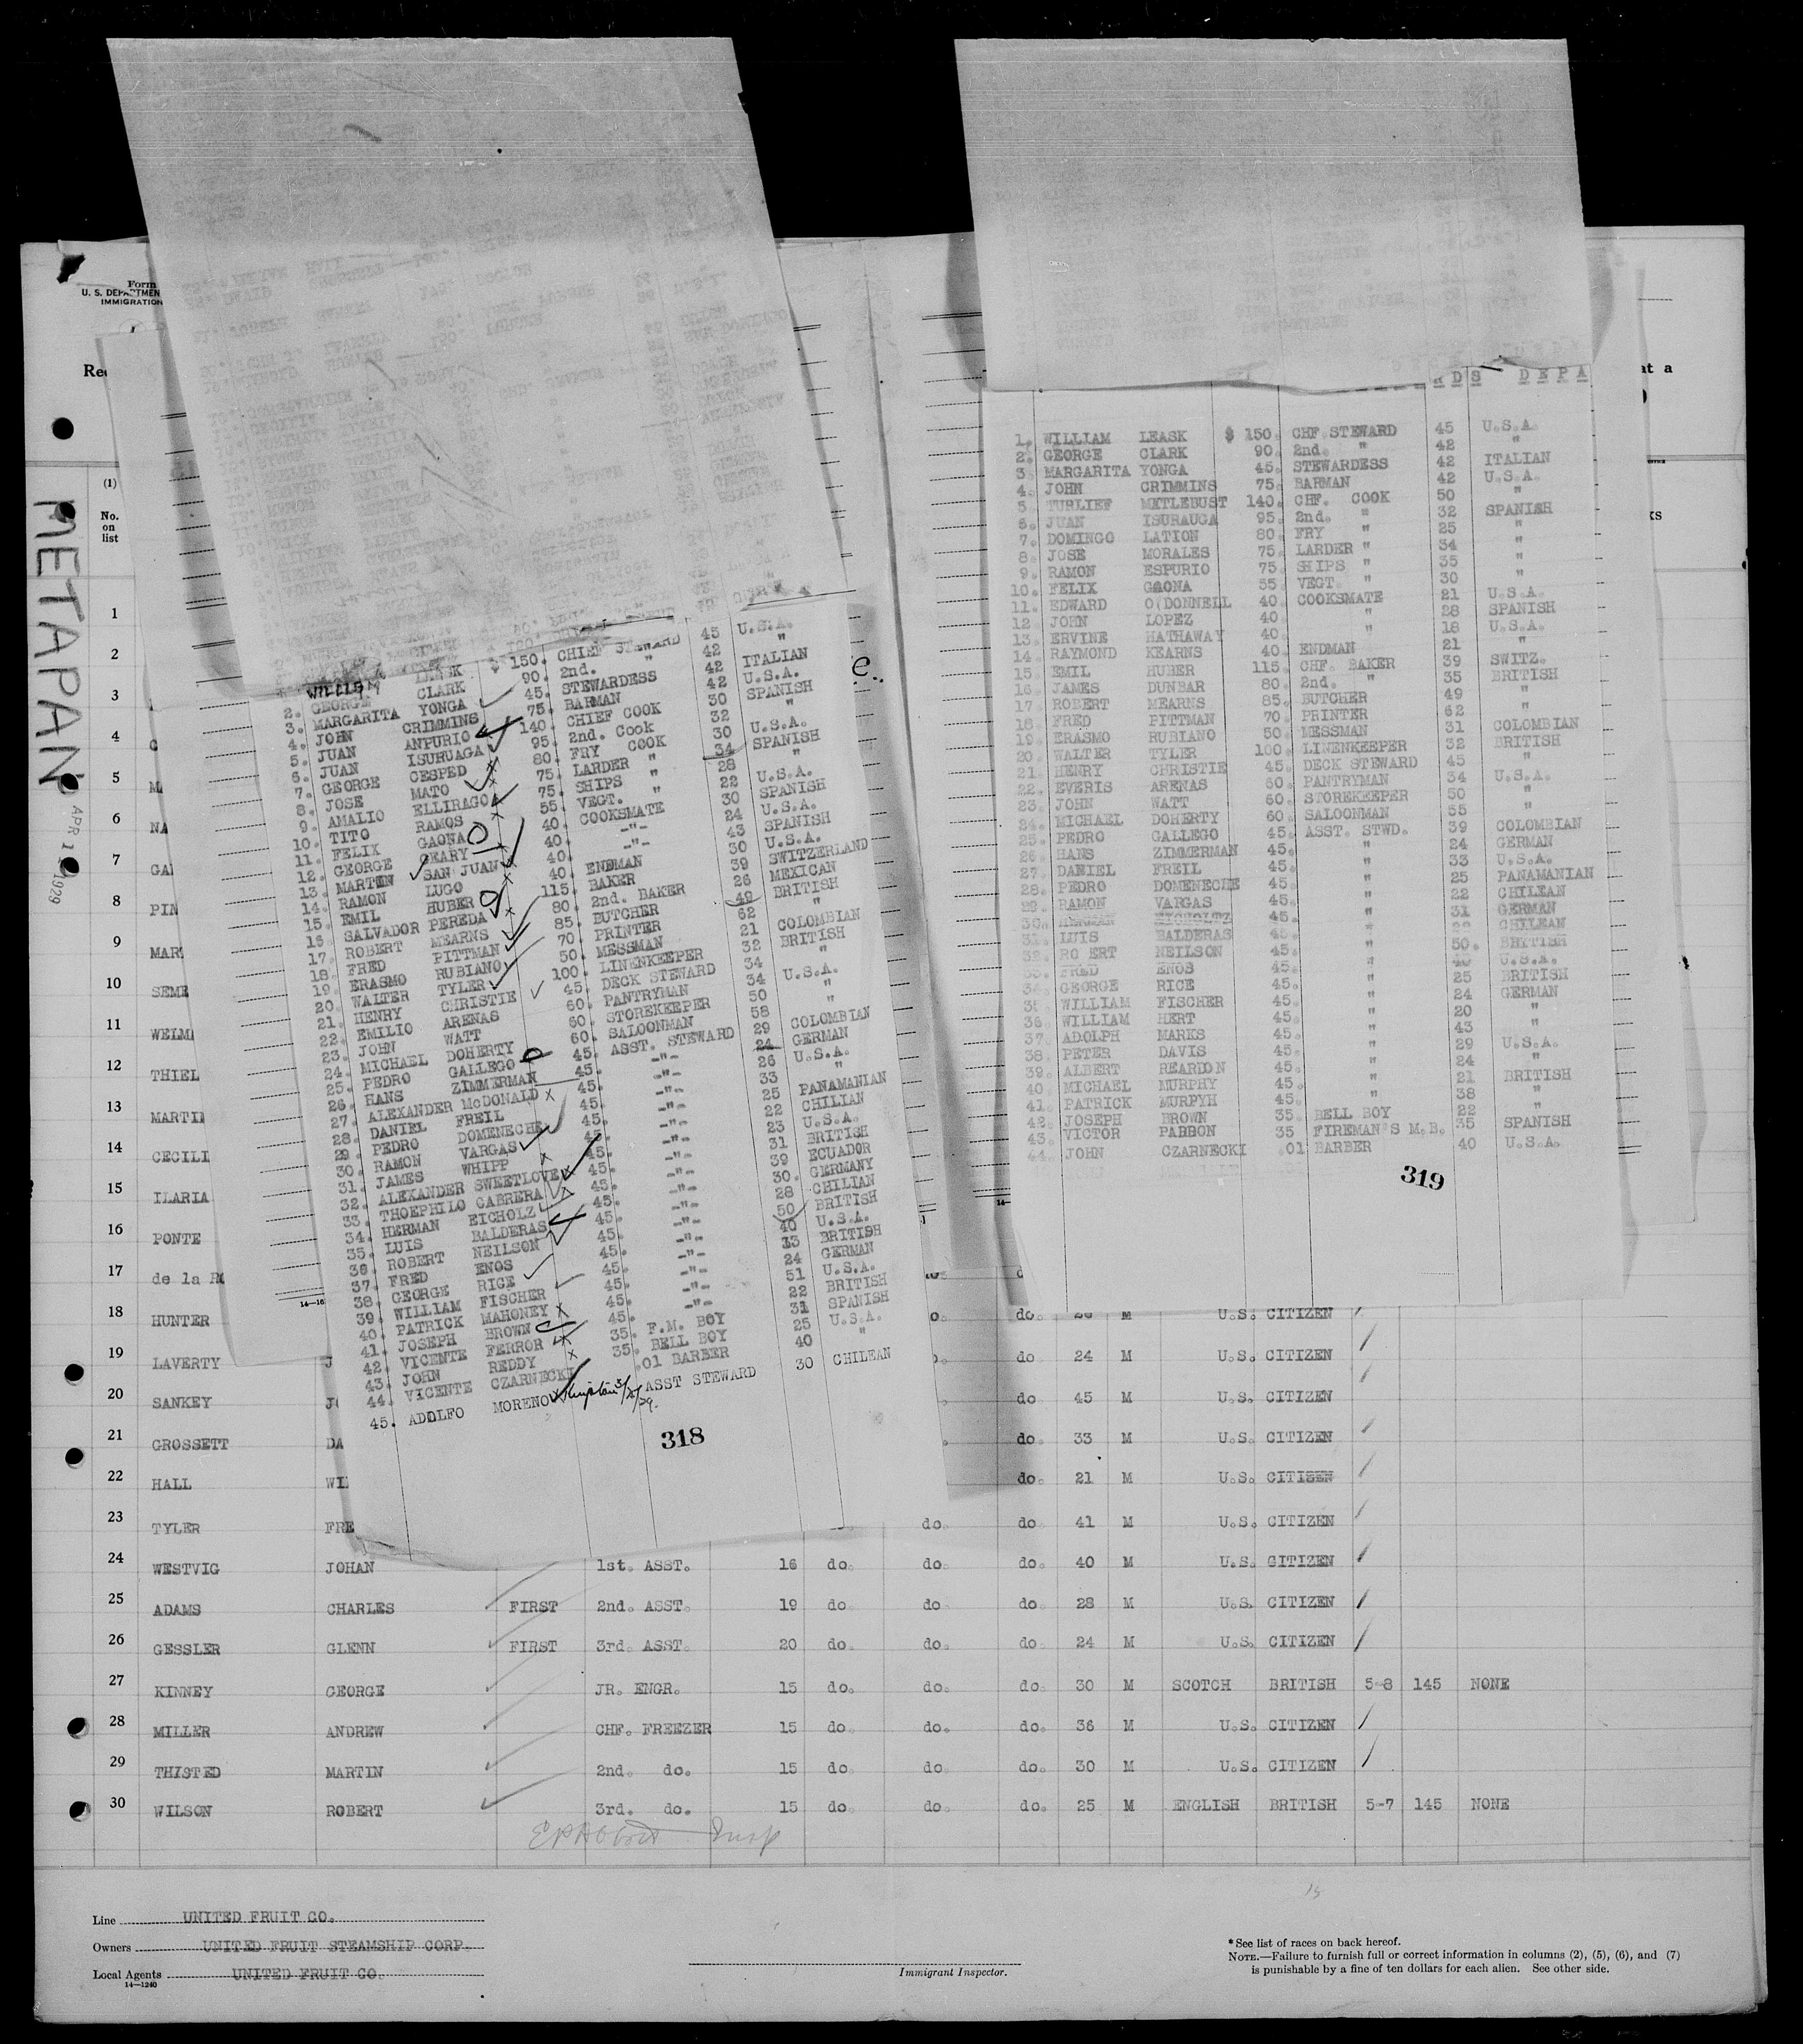 Form
U. S. DEPARTMEN
IMMIGRATION
Rec
at a
(1)
No.
on
list
METAPAN
APR 1 1929
1
2
3
4
5
6 NA
7 GAI
8 PIN
9 MAR
10 SEME
11 WELM
12 THIEL
13 MARTIN
14 CECILI
15 ILARIA
16 PONTE
17 de la
18 HUNTER do. 26 M U.S. CITIZEN
19 LAVERTY J do 24 M U.S. CITIZEN
20 SANKEY do 45 M U.S. CITIZEN
21 CROSSETT DA do. 33 M U.S. CITIZEN
22 HALL WIL do. 21 M U.S. CITIZEN
23 TYLER FRE do. do 41 M U.S. CITIZEN
24 WESTVIG JOHAN 1st. ASST. 16 do. do. do. 40 M U.S. CITIZEN
25 ADAMS CHARLES FIRST 2nd. ASST. 19 do do do. 28 M U.S. CITIZEN
26 GESSLER GLENN FIRST 3rd. ASST. 20 do. do. do 24 M U.S. CITIZEN
27 KINNEY GEORGE JR. ENGR. 15 do. do. do. 30 M SCOTCH BRITISH 5-8 145 NONE
28 MILLER ANDREW CHF. FREEZER 15 do. do. do. 36 M U.S. CITIZEN
29 THISTED MARTIN 2nd. do. 15 do. do. do. 30 M U.S. CITIZEN
30 WILSON ROBERT 3rd. do. 15 do. do. do. 25 M ENGLISH BRITISH 5-7 145 NONE
WILLIAM LEASK $ 150. CHIEF STEWARD 45 U.S.A.
2. GEORGE CLARK 90. 2nd. " 42 "
3. MARGARITA YONGA 45. STEWARDESS 42 ITALIAN
4. JOHN CRIMMINS 75. BARMAN 42 U.S.A.
5. JUAN ANPURIO 140. CHIEF COOK 30 SPANISH
6. JUAN ISURUAGA 95. 2nd. Cook 32 "
7. GEORGE CESPED 80. FRY COOK 30 U.S.A.
8. JOSE MATO 75. LARDER " 34 SPANISH
9. AMALIO ELLIRAGO 75. SHIPS " 28 "
10. TITO RAMOS 55. VEGT. " 22 U.S.A.
11. FELIX GAONA 40. COOKSMATE 30 SPANISH
12. GEORGE GEARY 40. -"- 24 U.S.A.
13. MARTIN SAN JUAN 40. -"- 43 SPANISH
14. RAMON LUGO 40. ENDMAN 30 U.S.A.
15. EMIL HUBER 115. BAKER 39 SWITZERLAND
16. SALVADOR PEREDA 80. 2nd. BAKER 26 MEXICAN
17. ROBERT MEARNS 85. BUTCHER 49 BRITISH
18. FRED PITTMAN 70. PRINTER 62 "
19. ERASMO RUBIANO 50. MESSMAN 21 COLOMBIAN
20. WALTER TYLER 100. LINENKEEPER 32 BRITISH
21. HENRY CHRISTIE 45. DECK STEWARD 34 "
22. EMILIO ARENAS 60. PANTRYMAN 34 U.S.A.
23. JOHN WATT 60. STOREKEEPER 50 "
24. MICHAEL DOHERTY 60. SALOONMAN 58 "
25. PEDRO GALLEGO 45. ASST. STEWARD 29 COLOMBIAN
26. HANS ZIMMERMAN 45. -"- 24 GERMAN
27. ALEXANDER McDONALD 45. -"- 26 U.S.A.
28. DANIEL FREIL 45. -"- 33 "
29. PEDRO DOMENECHE 45. -"- 25 PANAMANIAN
30. RAMON VARGAS 45. -"- 22 CHILIAN
31. JAMES WHIPP 45. -"- 23 U.S.A.
32. ALEXANDER SWEETLOVE 45. -"- 31 BRITISH
33. THOEPHILO CABRERA 45. -"- 39 ECUADOR
34. HERMAN EICHOLZ 45. -"- 30. GERMANY
35. LUIS BALDERAS 45. -"- 28 CHILIAN
36. ROBERT NEILSON 45. -"- 50 BRITISH
37. FRED ENOS 45. -"- 40 U.S.A.
38. GEORGE RICE 45. -"- 33 BRITISH
39. WILLIAM FISCHER 45. -"- 24 GERMAN
40. PATRICK MAHONEY 45. -"- 51 U.S.A.
41. JOSEPH BROWN 35. F.M. BOY 22 BRITISH
42. VICENTE FERROR 35. BELL BOY 31 SPANISH
43. JOHN REDDY 25 U.S.A.
44. VICENTE CZARNECKI .01 BARBER 40 "
45. ADOLFO MORENO ASST STEWARD 30 CHILEAN
318
RDS DEPA
1. WILLIAM LEASK $ 150. CHF. STEWARD 45 U.S.A.
2. GEORGE CLARK 90. 2nd. " 42 "
3. MARGARITA YONGA 45. STEWARDESS 42 ITALIAN
4. JOHN CRIMMINS 75. BARMAN 42 U.S.A.
5. TURLIEF METLEBUST 140. CHF. COOK 50 "
6. JUAN ISURAUGA 95. 2nd. " 32 SPANISH
7. DOMINGO LATION 80. FRY " 25 "
8. JOSE MORALES 75. LARDER " 34 "
9. RAMON ESPURIO 75. SHIPS " 35 "
10. FELIX GAONA 55. VEGT. " 30 "
11. EDWARD O'DONNELL 40. COOKSMATE 21 U.S.A.
12 JOHN LOPEZ 40. " 28 SPANISH
13. ERVINE HATHAWAY 40. " 18 U.S.A.
14. RAYMOND KEARNS 40. ENDMAN 21 "
15. EMIL HUBER 115. CHF. BAKER 39 SWITZ.
16. JAMES DUNBAR 80. 2nd. " 35 BRITISH
17. ROBERT MEARNS 85. BUTCHER 49 "
18. FRED PITTMAN 70. PRINTER 62 "
19. ERASMO RUBIANO 50. MESSMAN 31 COLOMBIAN
20. WALTER TYLER 100. LINENKEEPER 32 BRITISH
21. HENRY CHRISTIE 45. DECK STEWARD 45 "
22. EVERIS ARENAS 60. PANTRYMAN 34 U.S.A.
23. JOHN WATT 60. STOREKEEPER 50 "
24. MICHAEL DOHERTY 60. SALOONMAN 55 "
25. PEDRO GALLEGO 45. ASST. STWD. 39 COLOMBIAN
26. HANS ZIMMERMAN 45. " 24 GERMAN
27. DANIEL FREIL 45. " 33 U.S.A.
28. PEDRO DOMENECHE 45. " 25 PANAMANIAN
29. RAMON VARGAS 45. " 22 CHILEAN
30. HERMAN EICHOLTZ 45. " 31 GERMAN
31. LUIS BALDERAS 45. " CHILEAN
32. RO ERT NEILSON 45. " 50. BRITISH
33. FRED ENOS 45. " 40 U.S.A.
34. GEORGE RICE 45. " 25 BRITISH
35. WILLIAM FISCHER 45. " 24 GERMAN
36. WILLIAM HERT 45. " 20 "
37. ADOLPH MARKS 45. " 43 "
38. PETER DAVIS 45. " 29 U.S.A.
39. ALBERT REARDON 45. " 24 "
40. MICHAEL MURPHY 45. " 21 BRITISH
41. PATRICK MURPYH 45. " 38 "
42. JOSEPH BROWN 35. BELL BOY 22 "
43. VICTOR PABBON 35 FIREMAN'S M.B. 35 SPANISH
44. JOHN CZARNECKI .01 BARBER 40 U.S.A.
319
Line UNITED FRUIT CO.
Owners UNITED FRUIT STEAMSHIP CORP.
Local Agents UNITED FRUIT CO.
14—1240
Immigrant Inspector.
* See list of races on back hereof.
NOTE.—Failure to furnish full or correct information in columns (2), (5), (6), and (7)
is punishable by a fine of ten dollars for each alien. See other side.